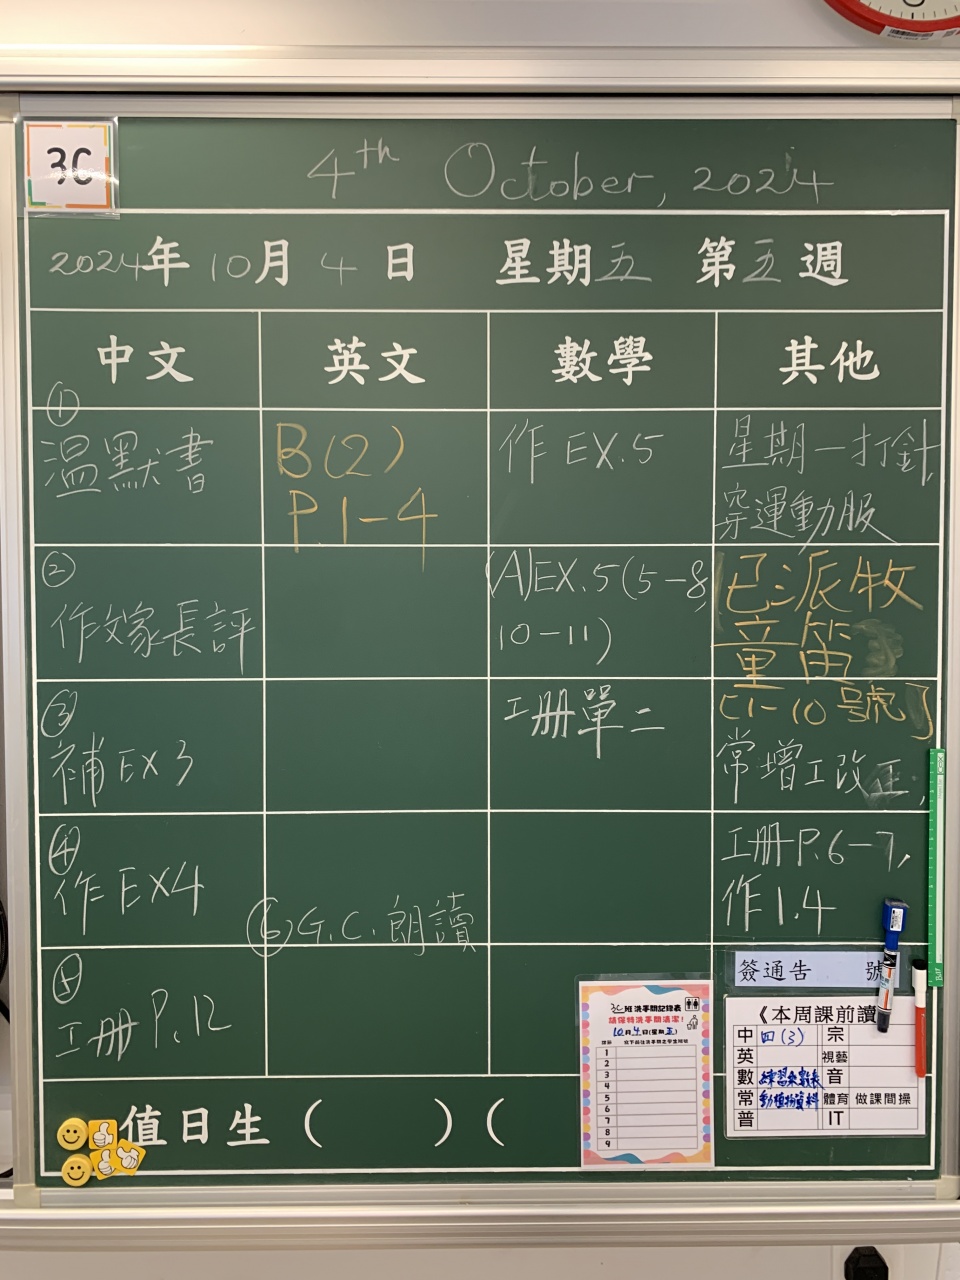 3C
4th October, 2024
2024年 10月 4 日 星期五 第五週
中文 英文 數學 其他
①
溫默書
B(2)
P.1-4
作 EX.5
星期一打針,
穿運動服
②
作文家長評
(A)EX.5(5-8,
10-11)
已派牧
童笛
③
補EX3
工冊單二
[1-10號]
常增工改正,
④
作EX4
⑥G.C.朗讀
工冊P.6-7,
作1.4
⑤
工冊 P.12
簽通告 號
值日生( )(
3C班洗手間記錄表
請保持洗手間清潔!
10月4日(星期五)
1
2
3
4
5
6
7
8
9
《本周課前讀
中 四(3) 宗
英 視藝
數 練習乘數表 音
常 動植物資料 體育 做課間操
普 IT